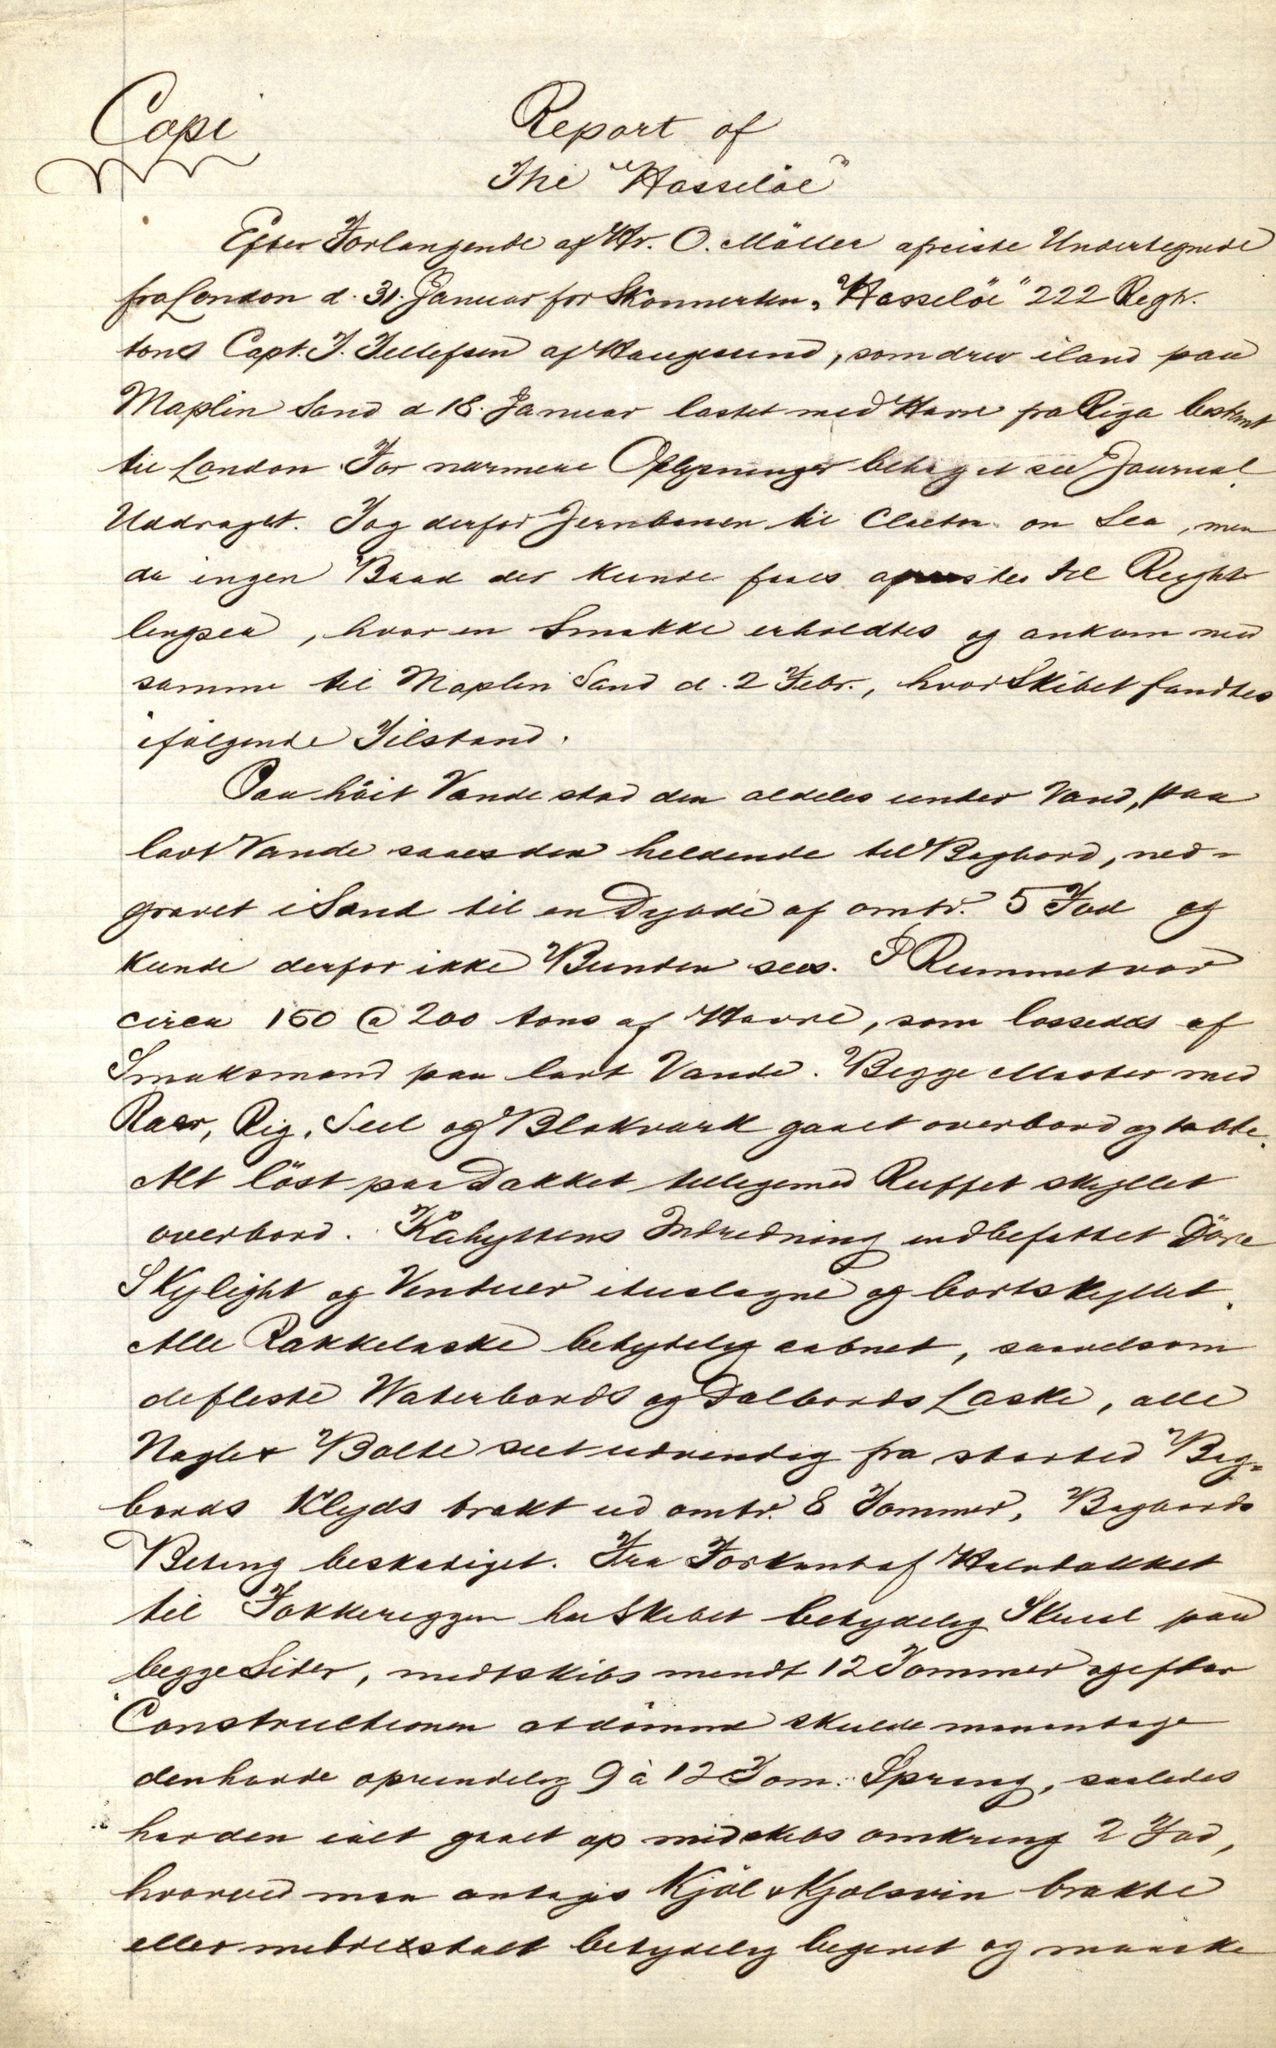 Copi
Report of
The "Hasselöe"
Efter Forlangende af Hr. O. Möller afreiste Undertegnede
fra London d. 31. Januar for Skonnerten "Hasselöe" 222 Regtr.
tons Capt. J. Tellefsen af Haugesund, som drev iland paa
Maplin Sand d 18. Januar lastet med Havre fra Riga bestemt
til London. For nærmere Oplysninger behag at see Journal
Uddraget. Tog derfor Jernbanen til Clacton on Sea, men
da ingen Baad der kunde faaes afreistes til Bright-
lingsea, hvor en Smakke erholdtes og ankom med
samme til Maplin Sand d. 2 Febr., hvor Skibet fandtes
ifølgende Tilstand.
Paa höit Vande stod den aldeles under Vand, paa
lavt Vande saaes den heldende til Bagbord, ned-
gravet i Sand til en Dybde af omtr. 5 Fod og
kunde derfor ikke Bunden sees. I Rummet var
circa 150 @ 200 tons af Havre, som lossedes af
Smaksmænd paa lavt Vande. Begge Master med
Raaer, Rig, Seil og Blokværk gaaet overbord og tabte.
Alt löst paa Dækket tilligemed Ruffet skyllet
overbord. Kahyttens Indredning indbefattet Döre
Skylight og Vinduer ituslagne og bortskyllet.
Alle Rækkelaske betydelig aabnet, saavelsom
defleste Waterbords og Dolbords Laske, alle
Nagler & Bolte seet udvendig fra started Bag-
bords Klyds brækt ud omtr. 8 Tommer, Bagbords
Beting beskadiget. Fra Forkant af Halvdækket
til Fokkeriggen har Skibet betydelig Skud paa
begge Sider, midtskibs mindt 12 Tommer og efter
Constructionen at dömme skulde man antage
den havde oprindelig 9 à 12 Tom. Spring, saaledes
har den ialt gaaet op midskibs omkring 2 Fod,
hvorved man antager Kjöl & Kjølsvin brækket
eller indtil betydelig bøjet og maaske